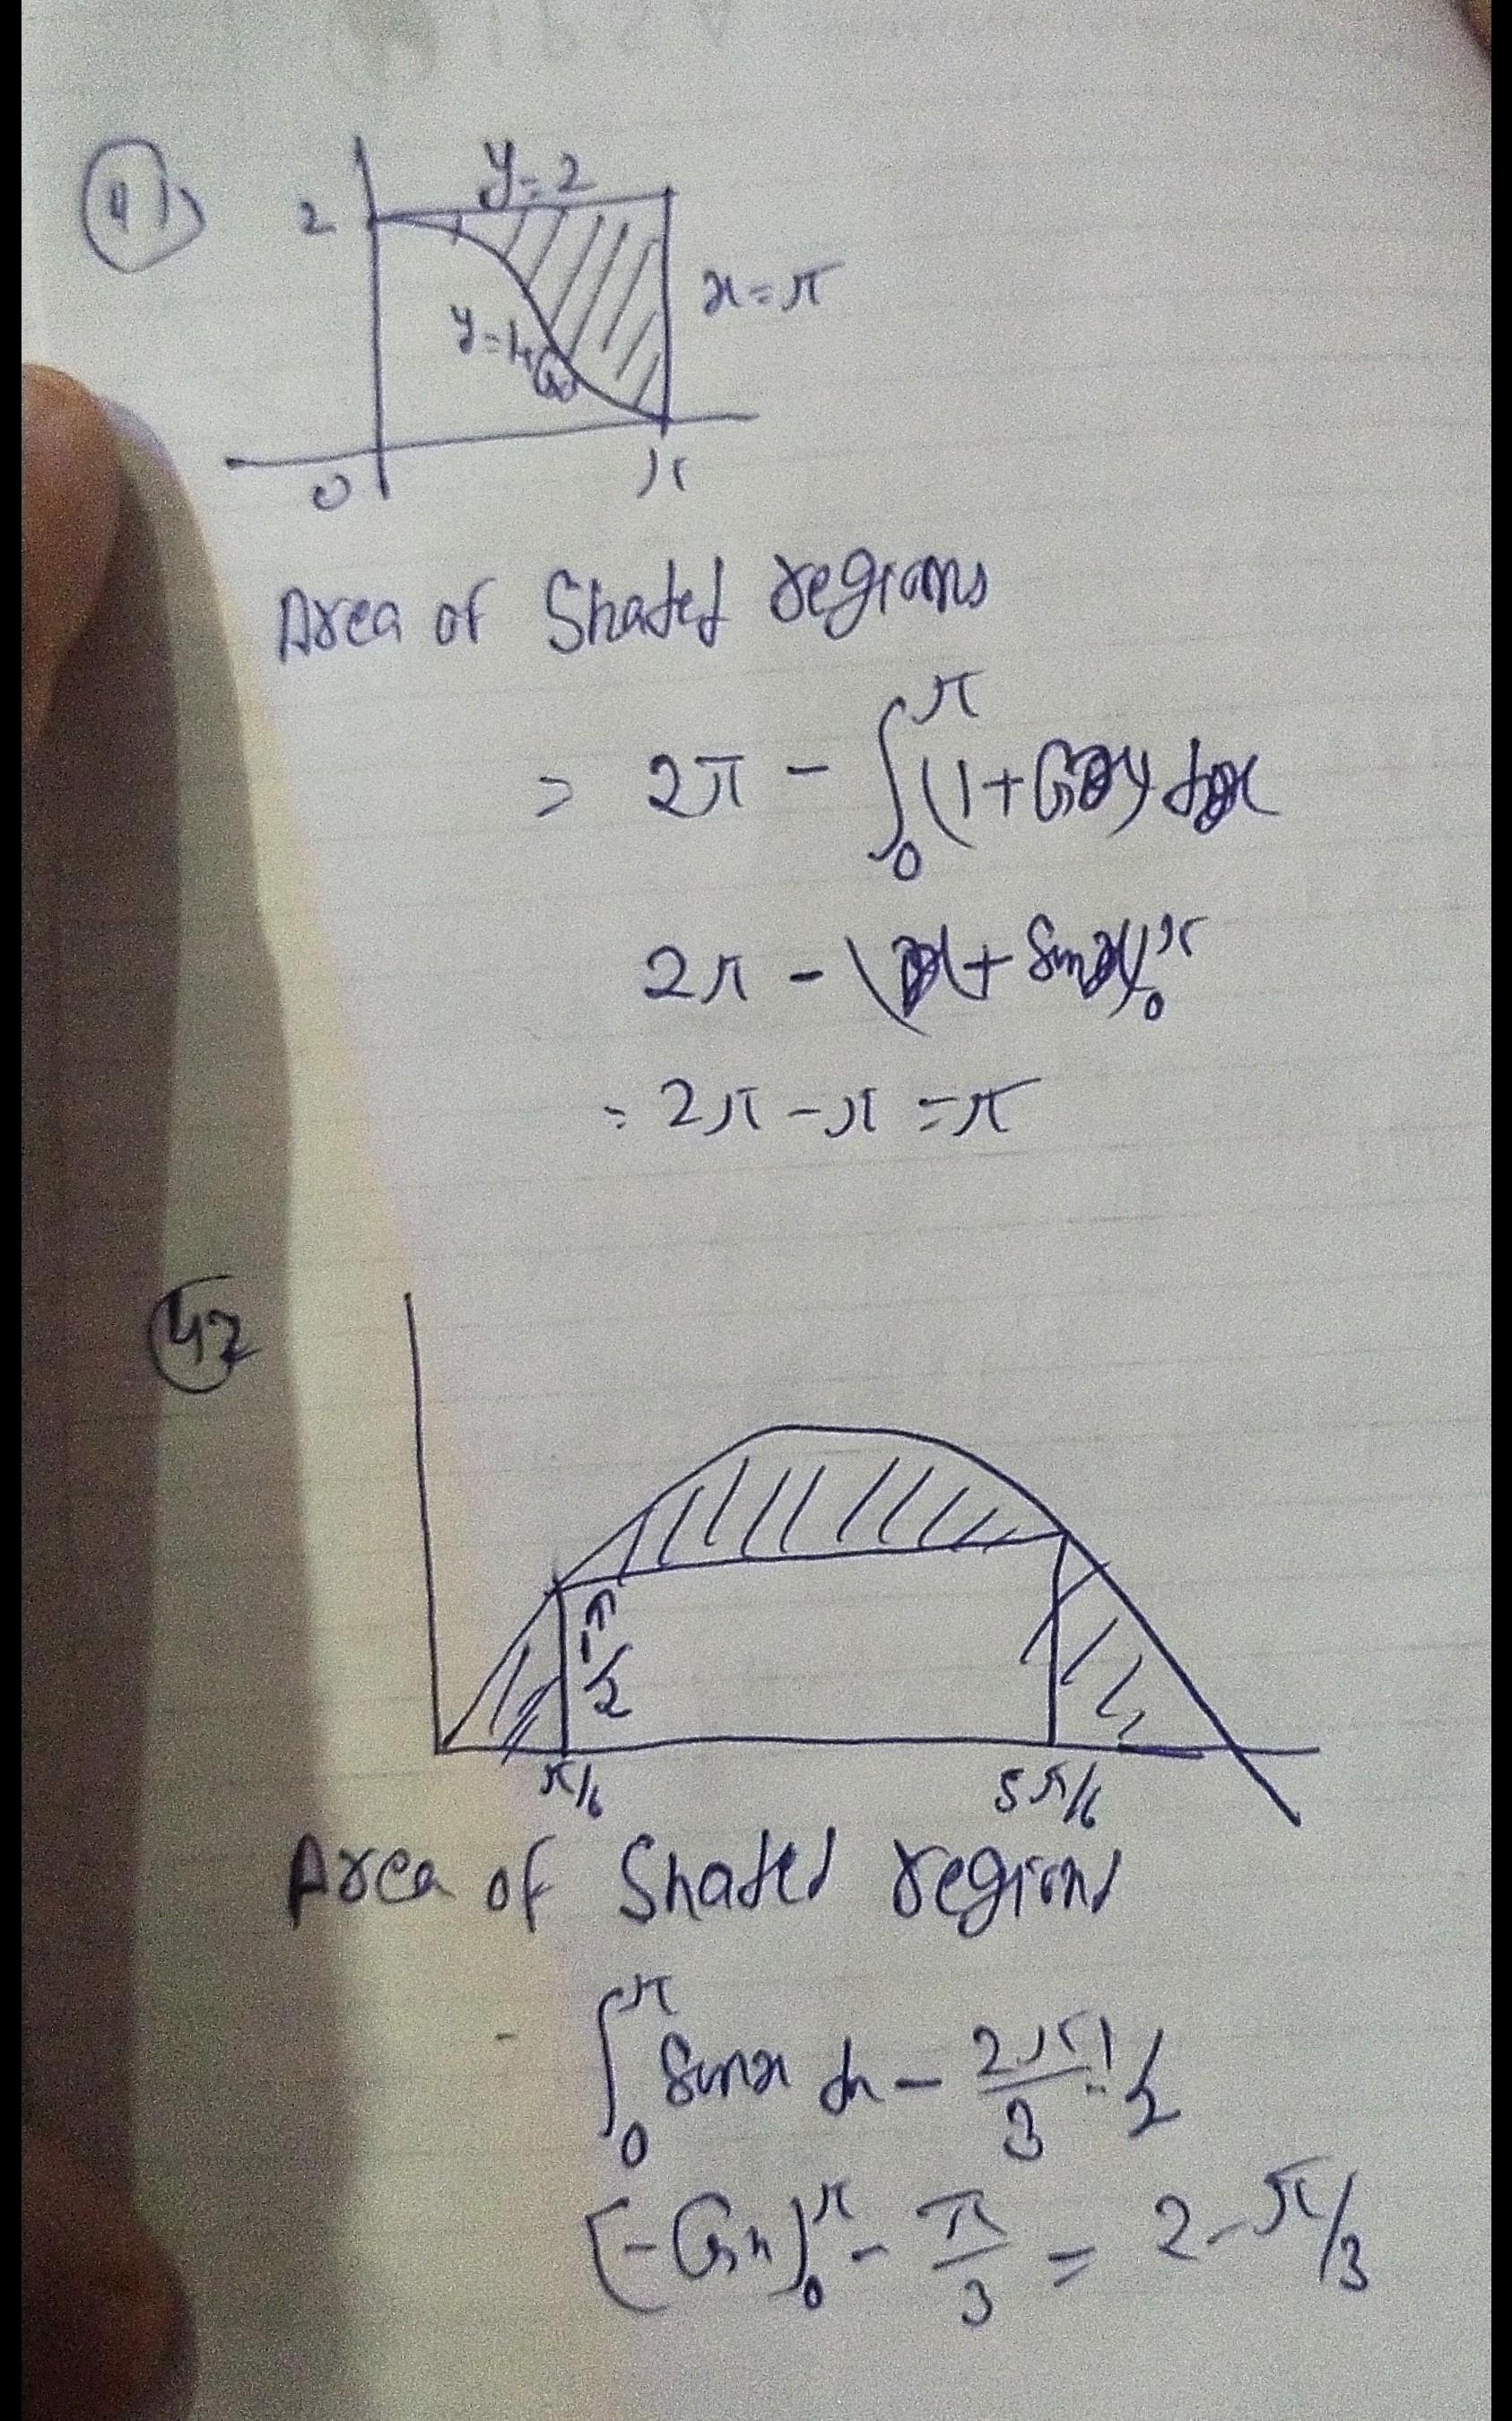 41)
y=2
2
x=π
y=1+Cosx
0 π
Area of Shaded regions
= 2π - ∫₀^π (1+Cosx) dx
2π - (x + Sinx)₀^π
= 2π - π = π
42
π/6 5π/6
Area of Shaded regions
∫₀^π Sinx dx - 2π/3 · 1/2
[-Cosx]₀^π - π/3 = 2 - π/3